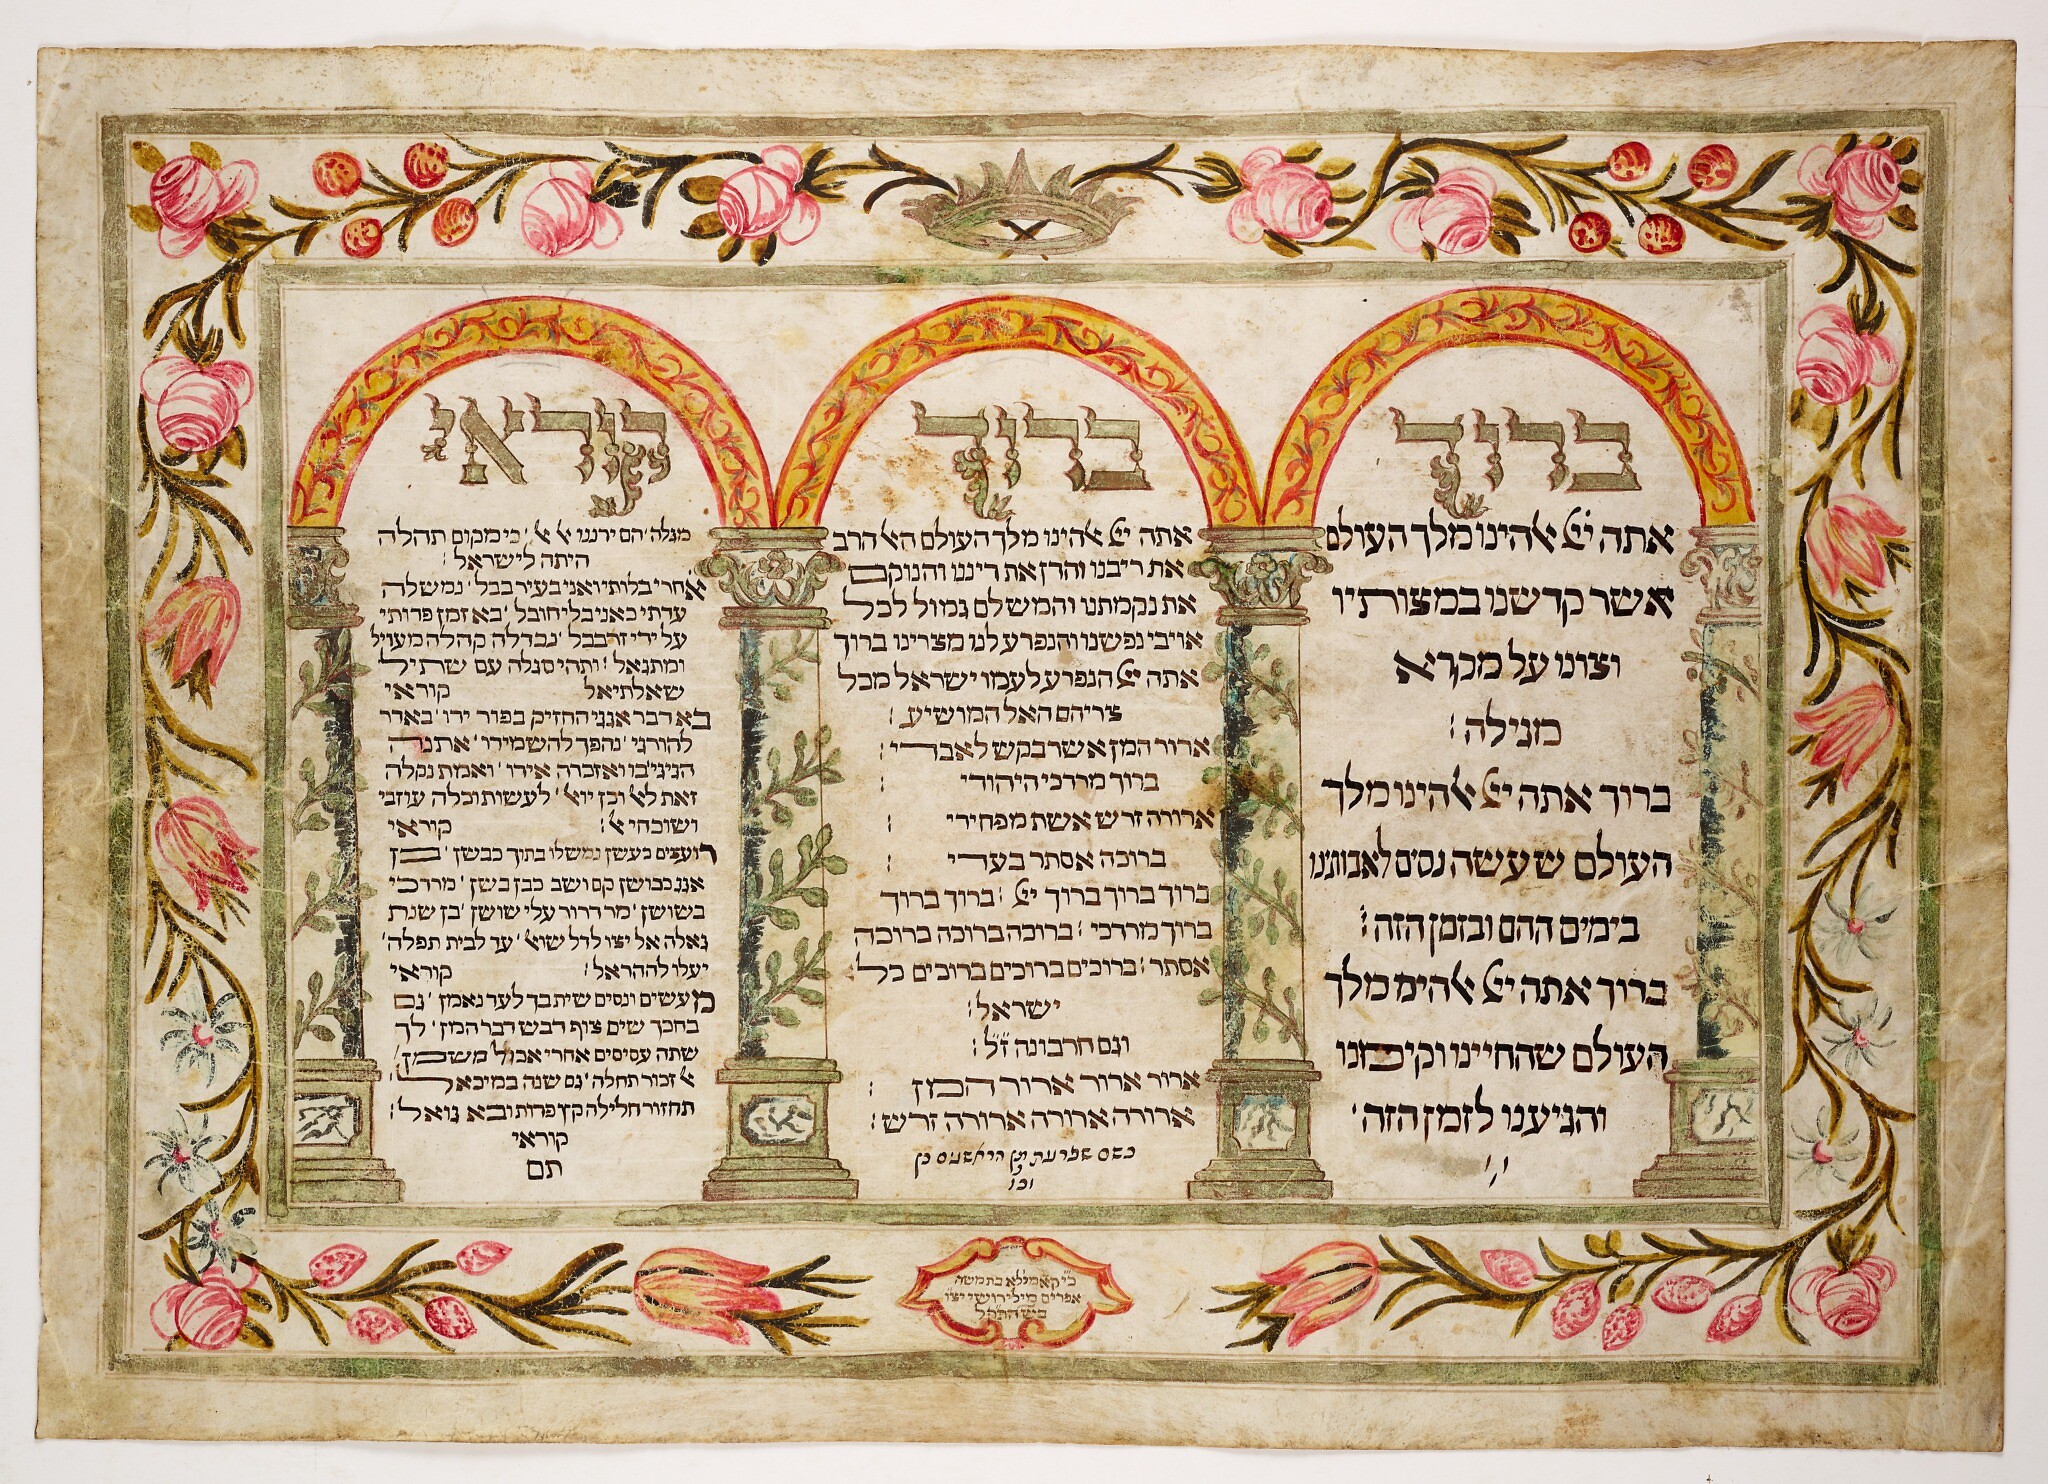 ברוך
אתה יי אלהינו מלך העולם
אשר קדשנו במצותיו
וצונו על מקרא
מגילה:
ברוך אתה יי אלהינו מלך
העולם שעשה נסים לאבותינו
בימים ההם ובזמן הזה:
ברוך אתה יי אלהינו מלך
העולם שהחיינו וקיימנו
והגיענו לזמן הזה:
ברוך
אתה יי אלהינו מלך העולם האל הרב
את ריבנו והדן את דיננו והנוקם
את נקמתנו והמשלם גמול לכל
אויבי נפשנו והנפרע לנו מצרינו ברוך
אתה יי הנפרע לעמו ישראל מכל
צריהם האל המושיע:
ארור המן אשר בקש לאבדי:
ברוך מרדכי היהודי:
ארורה זרש אשת מפחידי:
ברוכה אסתר בעדי:
ברוך ברוך ברוך יי: ברוך ברוך
ברוך מרדכי: ברוכה ברוכה ברוכה
אסתר: ברוכים ברוכים ברוכים כל
ישראל:
וגם חרבונה ז״ל:
ארור ארור ארור המן:
ארורה ארורה ארורה זרש:
וכו
קוראי
מגלה הם ירננו אל אל כי מקום תהלה
היתה לישראל:
אחרי בלותי ואני בעיר בבל נמשלה
עדתי כאניה בלי חובל בא זמן פדותי
על ידי זרבבל נבדלה קהלה מעויל
ומתגאל ותהי סגלה עם שתיל
שאלתיאל קוראי
בא דבר אגגי החזיק בפור ידו באדר
להורגי נהפך להשמידו את
ואזכרה אידו ואמת נקלה
זאת לא וכן יואל לעשות וכלה עוזבי
ושוכחי אל: קוראי
רועצים כעשן נמשלו בתוך כבשן בן
אגג כבושן קם ושב כבן בשן מרדכי
בשושן מר דרור עלי שושן בן שנת
גאלה אל יצו לדל שואל עד לבית תפלה
יעלו לההראל: קוראי
מעשים ונסים שית בך לעד נאמן גם
בחכך שים צוף דבש דבר המן לך
שתה עסיסים אחרי אכול משמן
אל זכור תחלה גם שנה במיכאל
תחזור חלילה קץ פדות ובא גואל:
קוראי
תם
אפרים